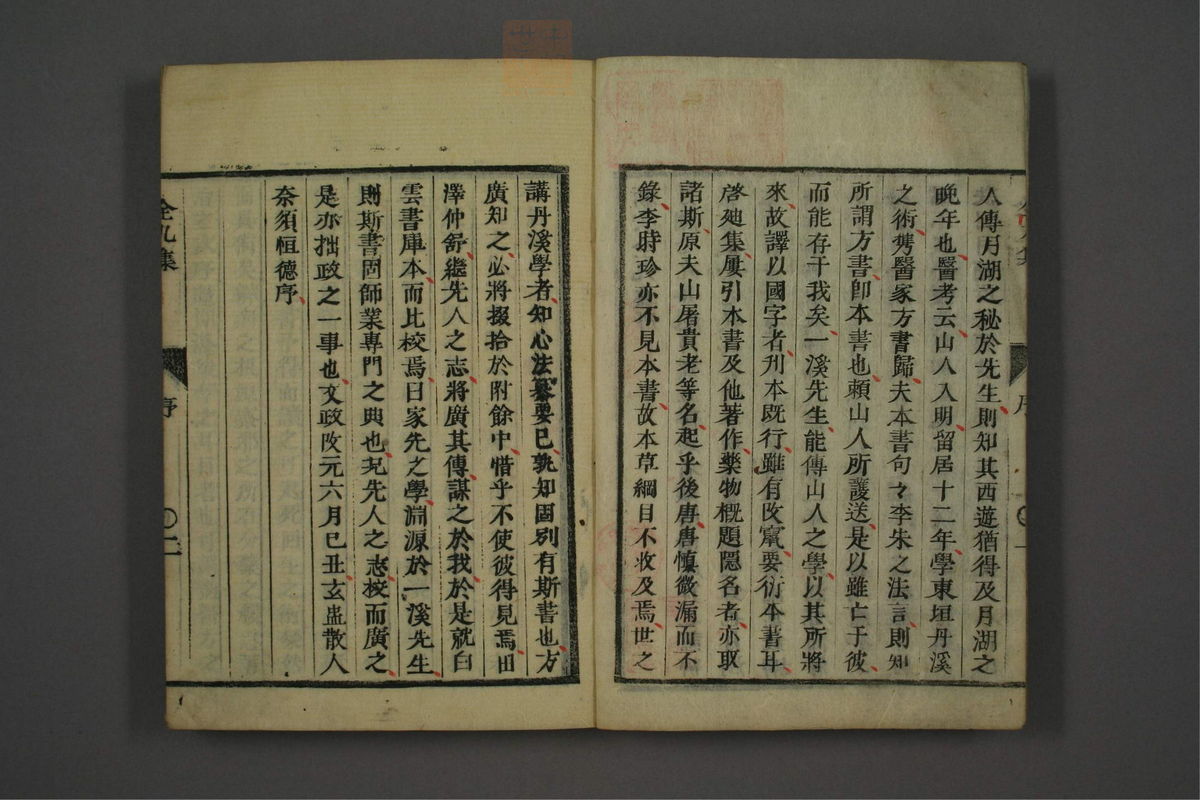 人傳月湖之秘於先生則知其西遊猶得及月湖之
晚年也醫考云山人入明留居十二年學東垣丹溪
之術携醫家方書歸夫本書句々李朱之法言則知
所謂方書卽本書也賴山人所護送是以雖亡于彼
而能存干我矣一溪先生能傳山人之學以其所將
來故譯以國字者刋本既行雖有改竄要衍本書耳
啓廸集屢引本書及他著作藥物概題隱名者亦取
諸斯原夫山屠貴老等名起乎後唐唐愼微漏而不
錄李時珍亦不見本書故本草綱目不收及焉世之
序
講丹溪學者知心法纂要已孰知固別有斯書也方
廣知之必將掇拾於附餘中惜乎不使彼得見焉田
澤仲舒繼先人之志將廣其傳謀之於我於是就白
雲書庫本而比校焉曰家先之學淵源於一溪先生
則斯書固師業專門之典也況先人之志校而廣之
是亦拙政之一事也文政改元六月己丑玄蟲散人
奈須恒德序
全九集
序
二